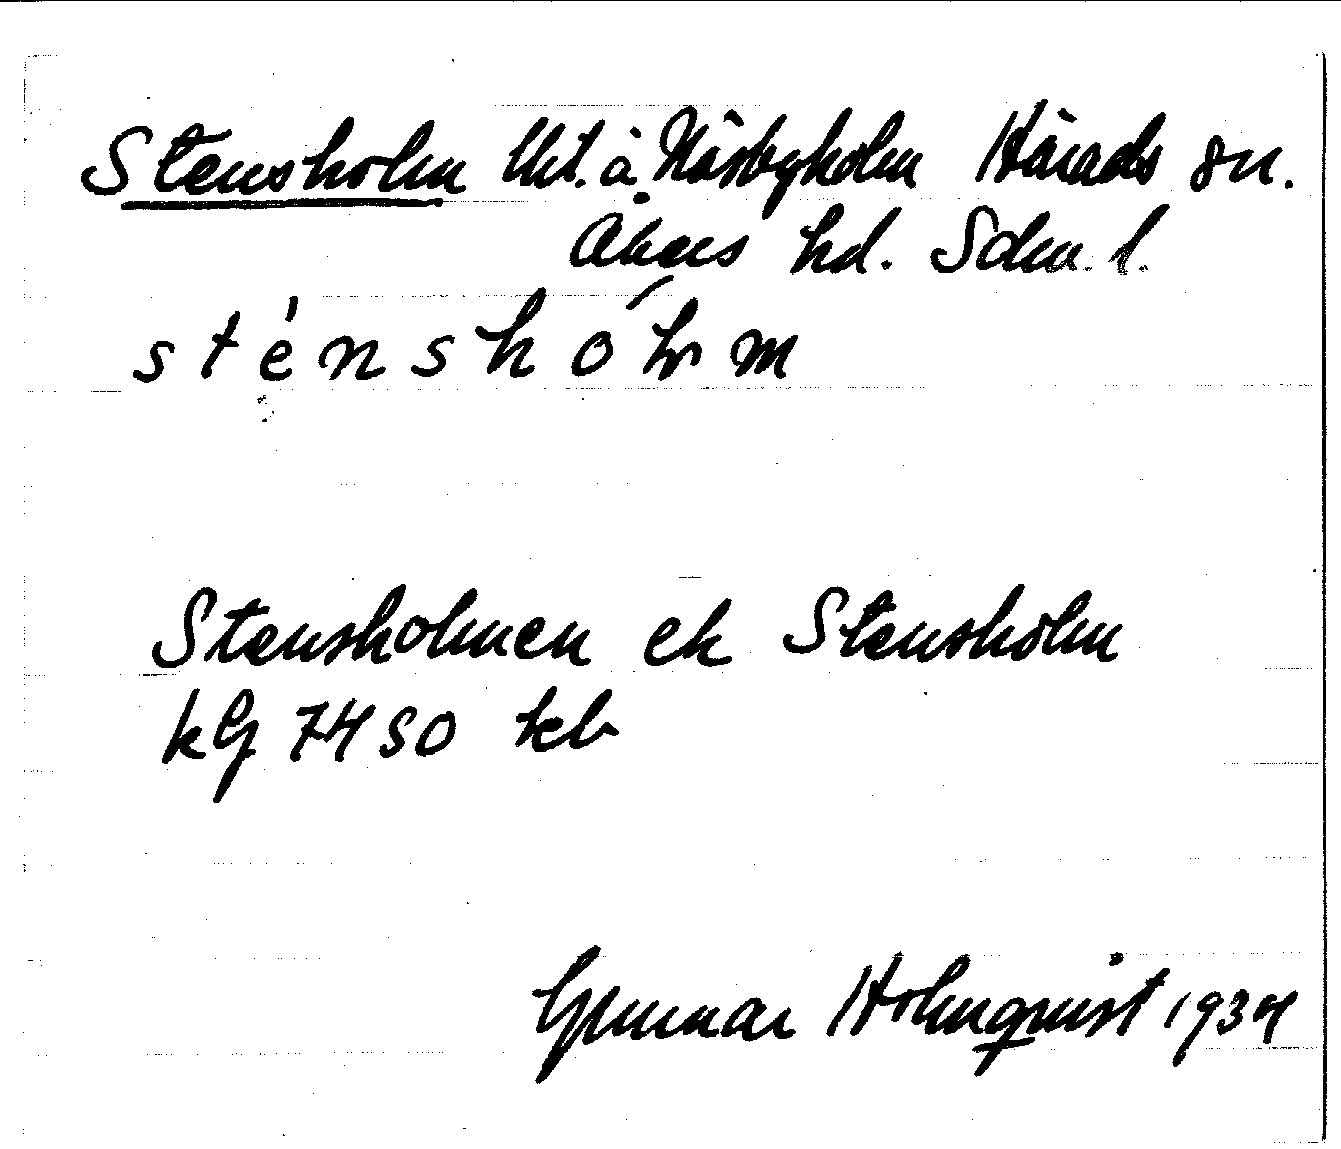 Stensholm Utt. å Näsbyholm Härads sn.
Åkers hd. Sdm. l.
sténshólm
Stensholmen ek Stensholm
kG 7450 kb
Gunnar Holmquist 1934